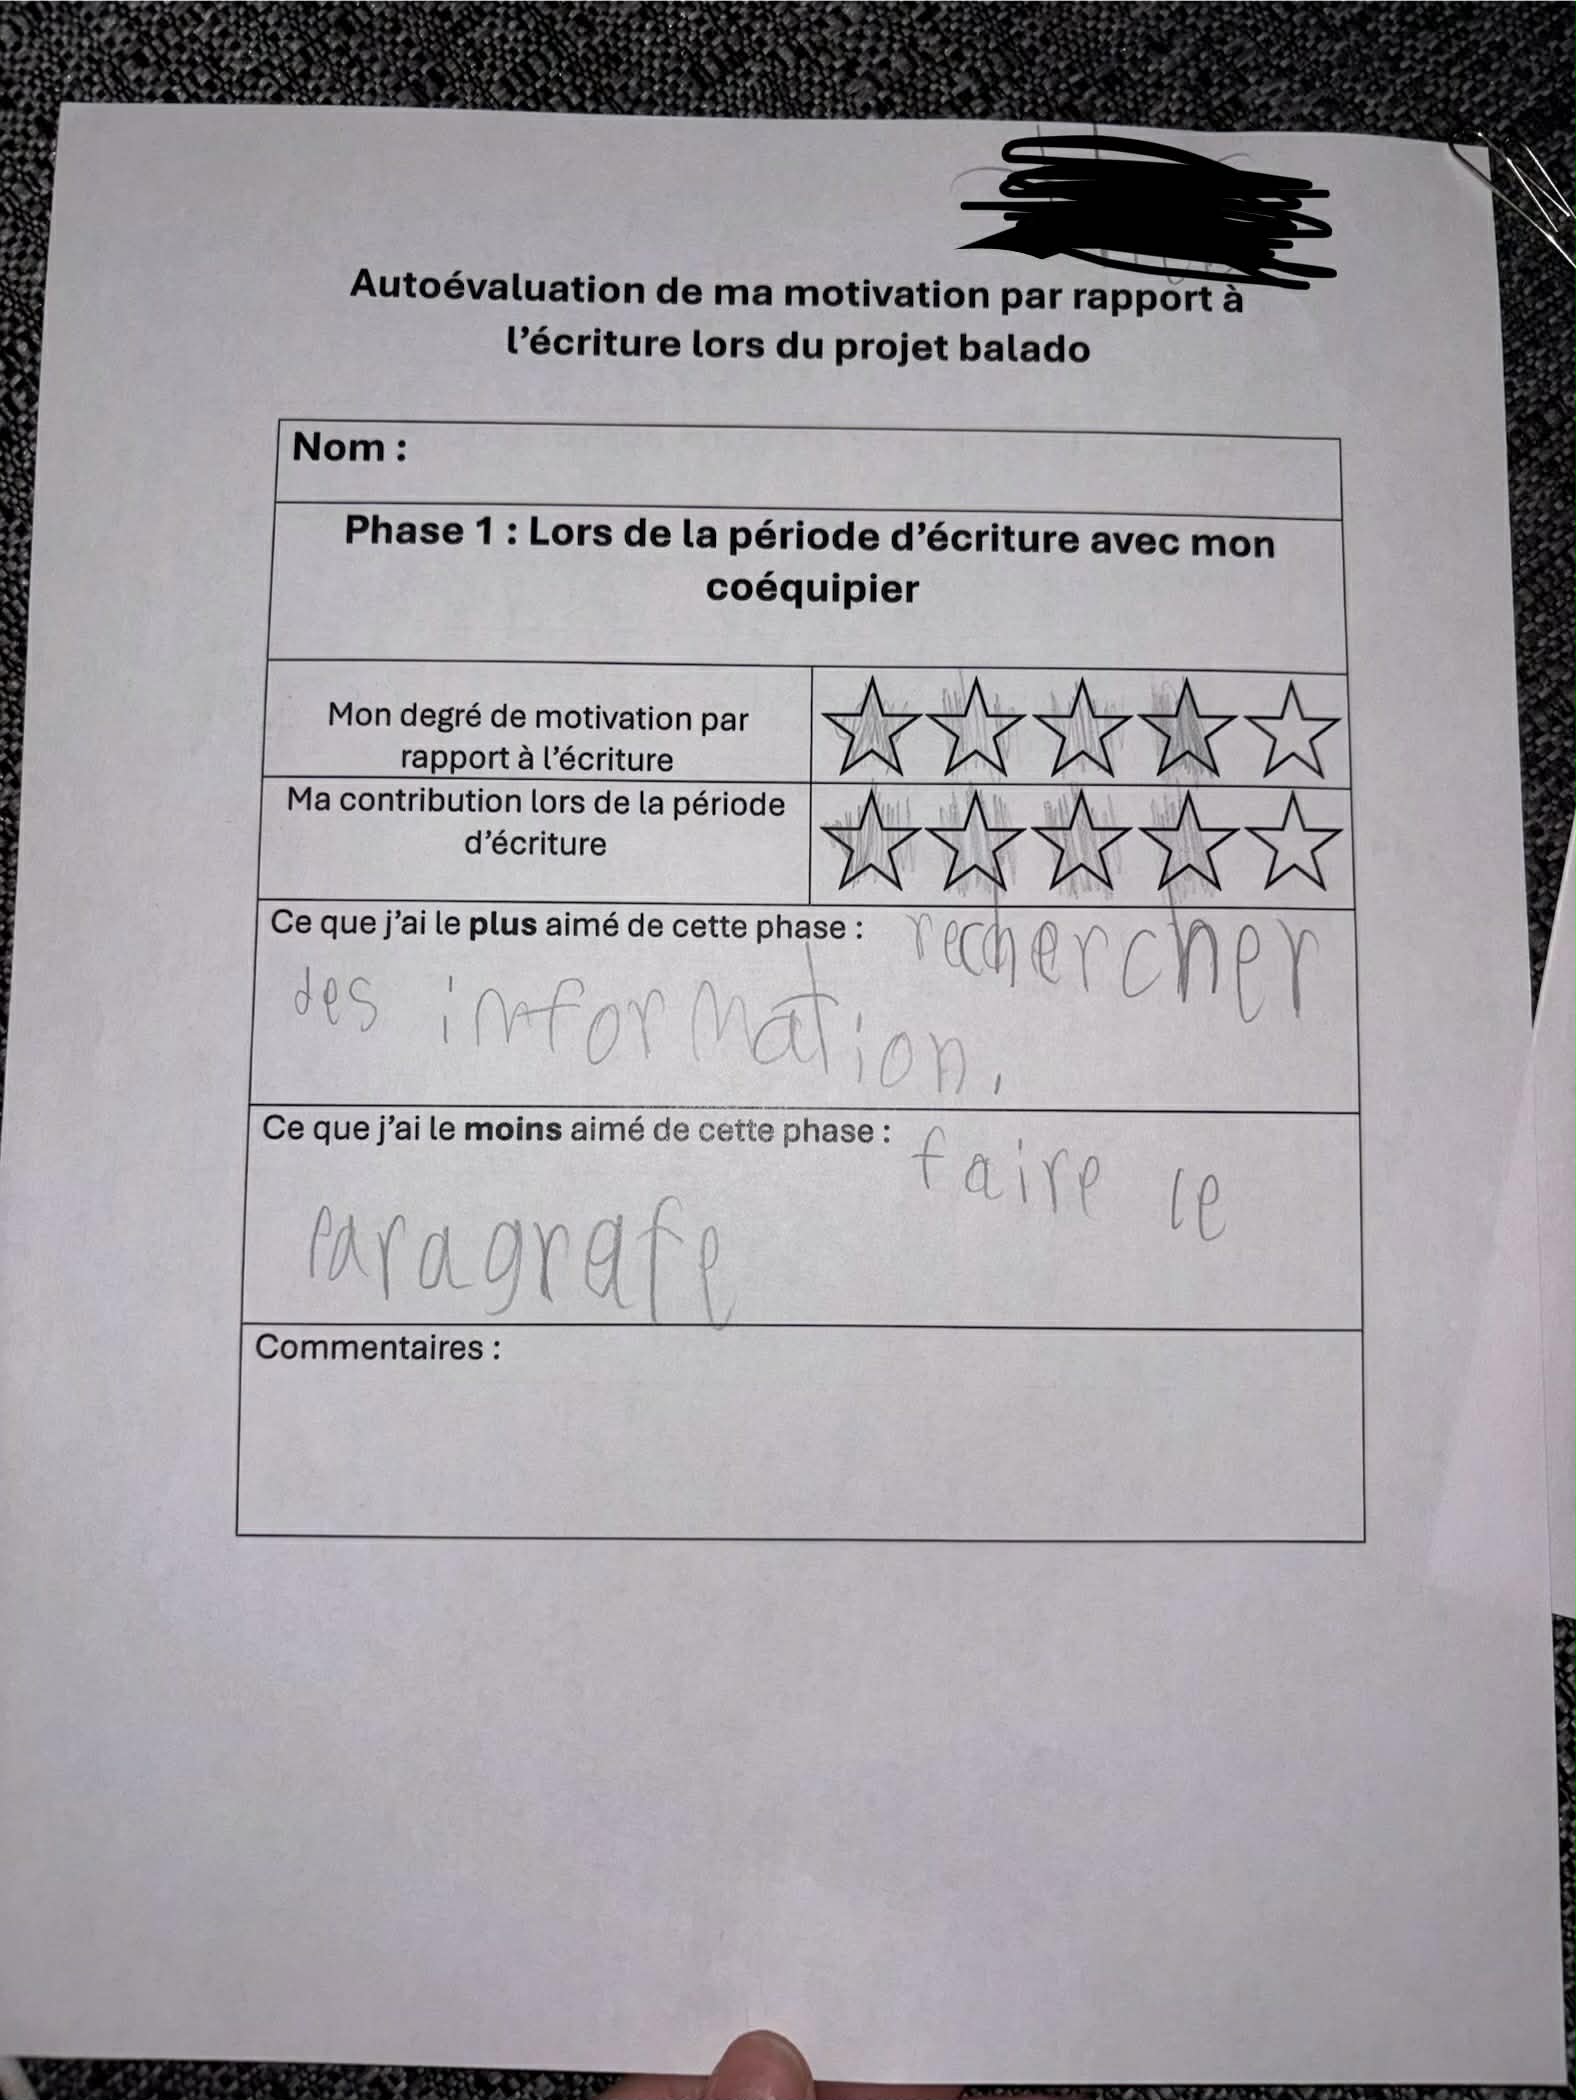 Autoévaluation de ma motivation par rapport à
l'écriture lors du projet balado
Nom :
Phase 1 : Lors de la période d'écriture avec mon
coéquipier
Mon degré de motivation par
rapport à l'écriture
Ma contribution lors de la période
d'écriture
Ce que j'ai le plus aimé de cette phase : rechercher
des information.
Ce que j'ai le moins aimé de cette phase : faire le
paragrafe
Commentaires :